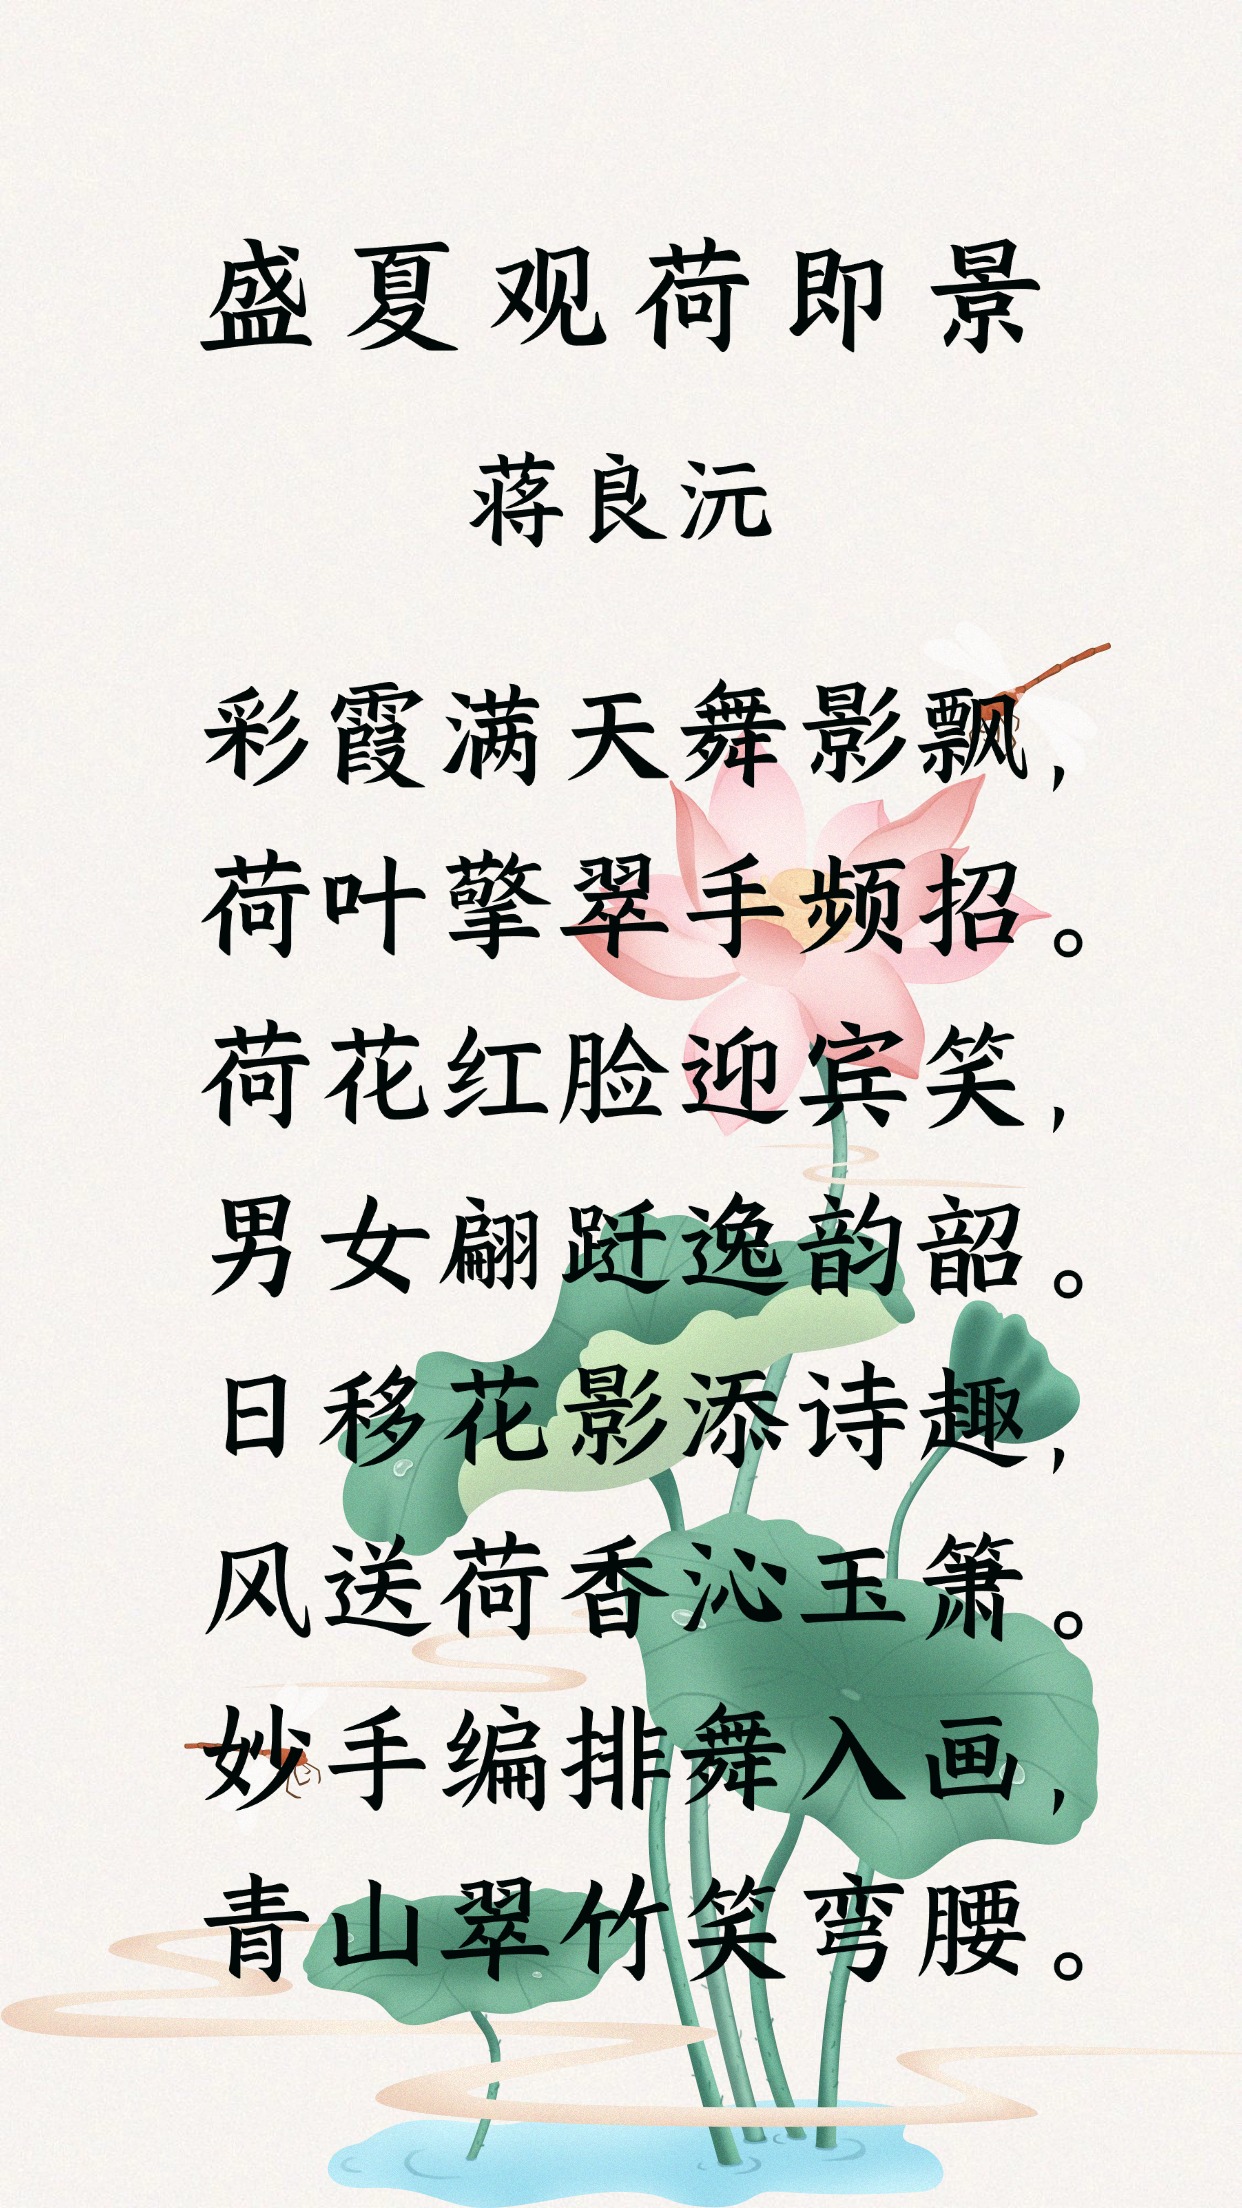 盛夏观荷即景
蒋良沅
彩霞满天舞影飘，
荷叶擎翠手频招。
荷花红脸迎宾笑，
男女翩跹逸韵韶。
日移花影添诗趣，
风送荷香沁玉箫。
妙手编排舞入画，
青山翠竹笑弯腰。